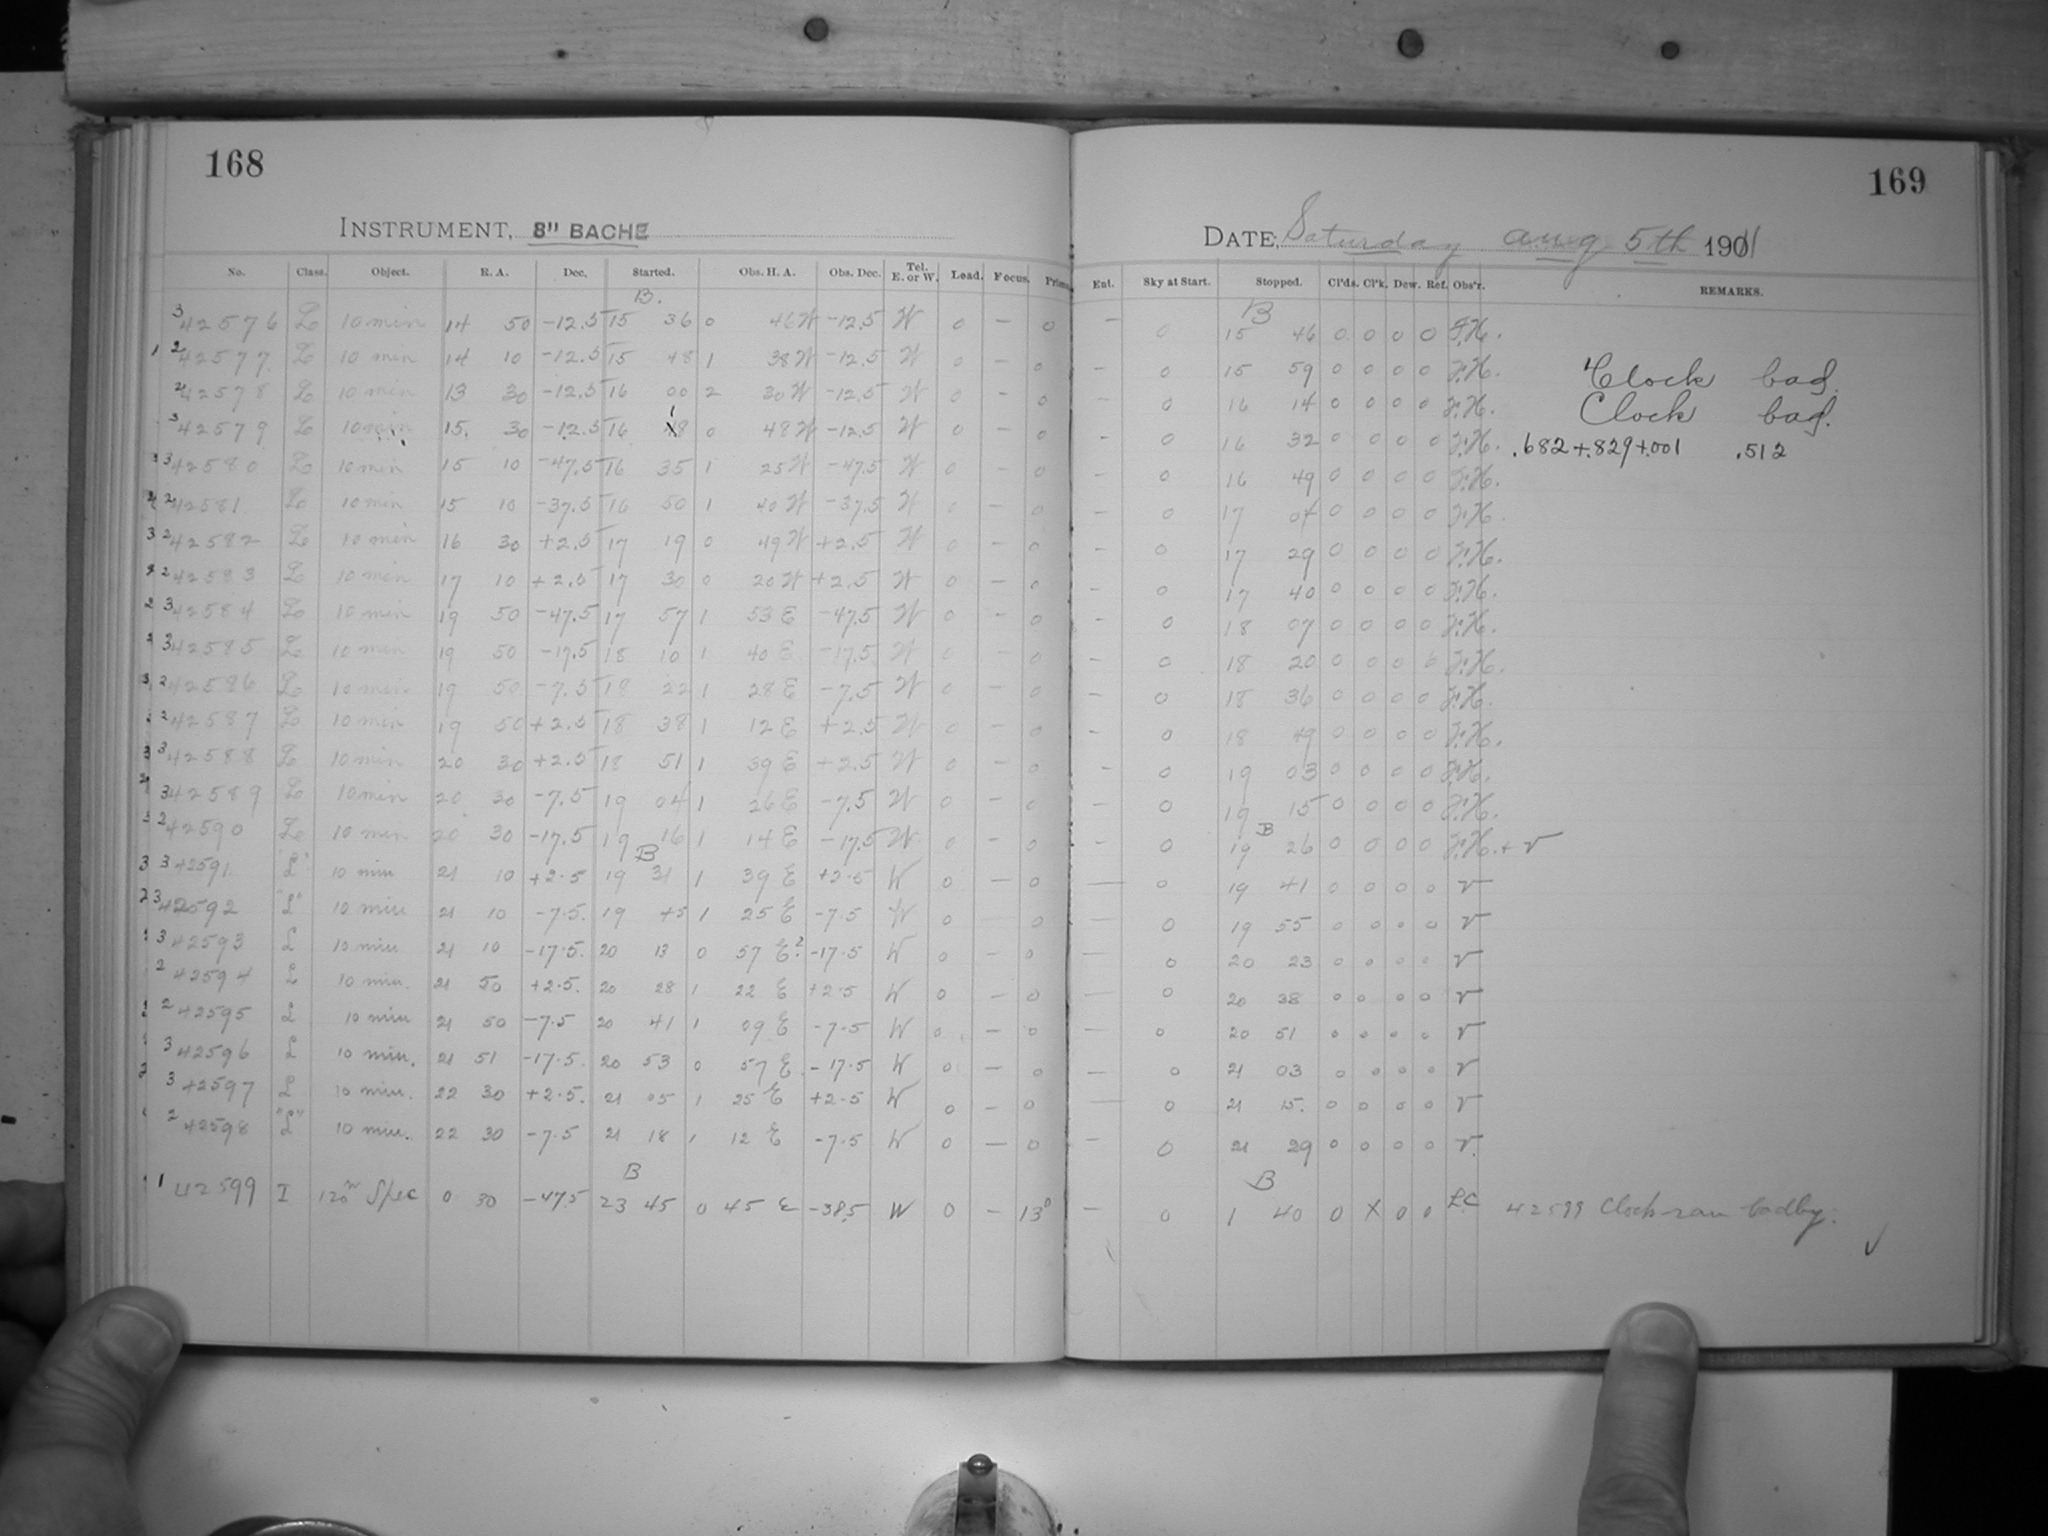 168
INSTRUMENT, 8" BACHE
No. Class. Object. R. A. Dec. Started. Obs. H. A. Obs. Dec. Tel. E. or W. Lead. Focus. Prism
B.
3 42576 L 10 min 14 50 -12.5 15 36 0 46 W -12.5 W 0 - 0
1 2 42577 L 10 min 14 10 -12.5 15 48 1 38 W -12.5 W 0 - 0
2 42578 L 10 min 13 30 -12.5 16 00 2 30 W -12.5 W 0 - 0
3 42579 L 10 min 15 30 -12.5 16 18 0 48 W -12.5 W 0 - 0
3 3 42580 L 10 min 15 10 -47.5 16 35 1 25 W -47.5 W 0 - 0
2 42581 L 10 min 15 10 -37.5 16 50 1 40 W -37.5 W 0 - 0
3 2 42582 L 10 min 16 30 +2.5 17 19 0 49 W +2.5 W 0 - 0
2 42583 L 10 min 17 10 +2.5 17 30 0 20 W +2.5 W 0 - 0
2 3 42584 L 10 min 19 50 -47.5 17 57 1 53 E -47.5 W 0 - 0
3 42585 L 10 min 19 50 -17.5 18 10 1 40 E -17.5 W 0 - 0
3 2 42586 L 10 min 19 50 -7.5 18 22 1 28 E -7.5 W 0 - 0
2 42587 L 10 min 19 50 +2.5 18 38 1 12 E +2.5 W 0 - 0
3 3 42588 L 10 min 20 30 +2.5 18 51 1 39 E +2.5 W 0 - 0
3 42589 L 10 min 20 30 -7.5 19 04 1 26 E -7.5 W 0 - 0
3 2 42590 L 10 min 20 30 -17.5 19 16 1 14 E -17.5 W 0 - 0
B
3 3 42591 "L" 10 min 21 10 +2.5 19 31 1 39 E +2.5 W 0 - 0
2 3 42592 "L" 10 min 21 10 -7.5. 19 45 1 25 E -7.5 W 0 0
3 42593 L 10 min 21 10 -17.5. 20 13 0 57 E? -17.5 W 0 - 0
2 42594 L 10 min. 21 50 +2.5. 20 28 1 22 E +2.5 W 0 - 0
2 42595 L 10 min 21 50 -7.5 20 41 1 09 E -7.5 W 0 - 0
3 42596 L 10 min. 21 51 -17.5. 20 53 0 57 E -17.5 W 0 - 0
3 42597 L 10 min. 22 30 +2.5. 21 05 1 25 E +2.5 W 0 - 0
2 42598 "L" 10 min. 22 30 -7.5 21 18 1 12 E -7.5 W 0 - 0
B
1 42599 I 120m Spec 0 30 -47.5 23 45 0 45 E -38.5 W 0 - 13°
169
DATE, Saturday Aug 5th 1911
Ent. Sky at Start. Stopped. Cl'ds. Cl'k. Dew. Ref. Obs'r. REMARKS.
B
- 0 15 46 0 0 0 0 F.H.
- 0 15 59 0 0 0 0 F.H. Clock bad.
- 0 16 14 0 0 0 0 F.H. Clock bad.
- 0 16 32 0 0 0 0 F.H. .682+.829+.001 .512
- 0 16 49 0 0 0 0 F.H.
- 0 17 04 0 0 0 0 F.H.
- 0 17 29 0 0 0 0 F.H.
- 0 17 40 0 0 0 0 F.H.
- 0 18 07 0 0 0 0 F.H.
- 0 18 20 0 0 0 0 F.H.
- 0 18 36 0 0 0 0 F.H.
- 0 18 49 0 0 0 0 F.H.
- 0 19 03 0 0 0 0 F.H.
- 0 19 15 0 0 0 0 F.H.
B
- 0 19 26 0 0 0 0 F.H. + V
- 0 19 41 0 0 0 0 V
- 0 19 55 0 0 0 0 V
- 0 20 23 0 0 0 0 V
- 0 20 38 0 0 0 0 V
- 0 20 51 0 0 0 0 V
- 0 21 03 0 0 0 0 V
- 0 21 15. 0 0 0 0 V
- 0 21 29 0 0 0 0 V.
B
- 0 1 40 0 X 0 0 L.C 42599 Clock ran badly.